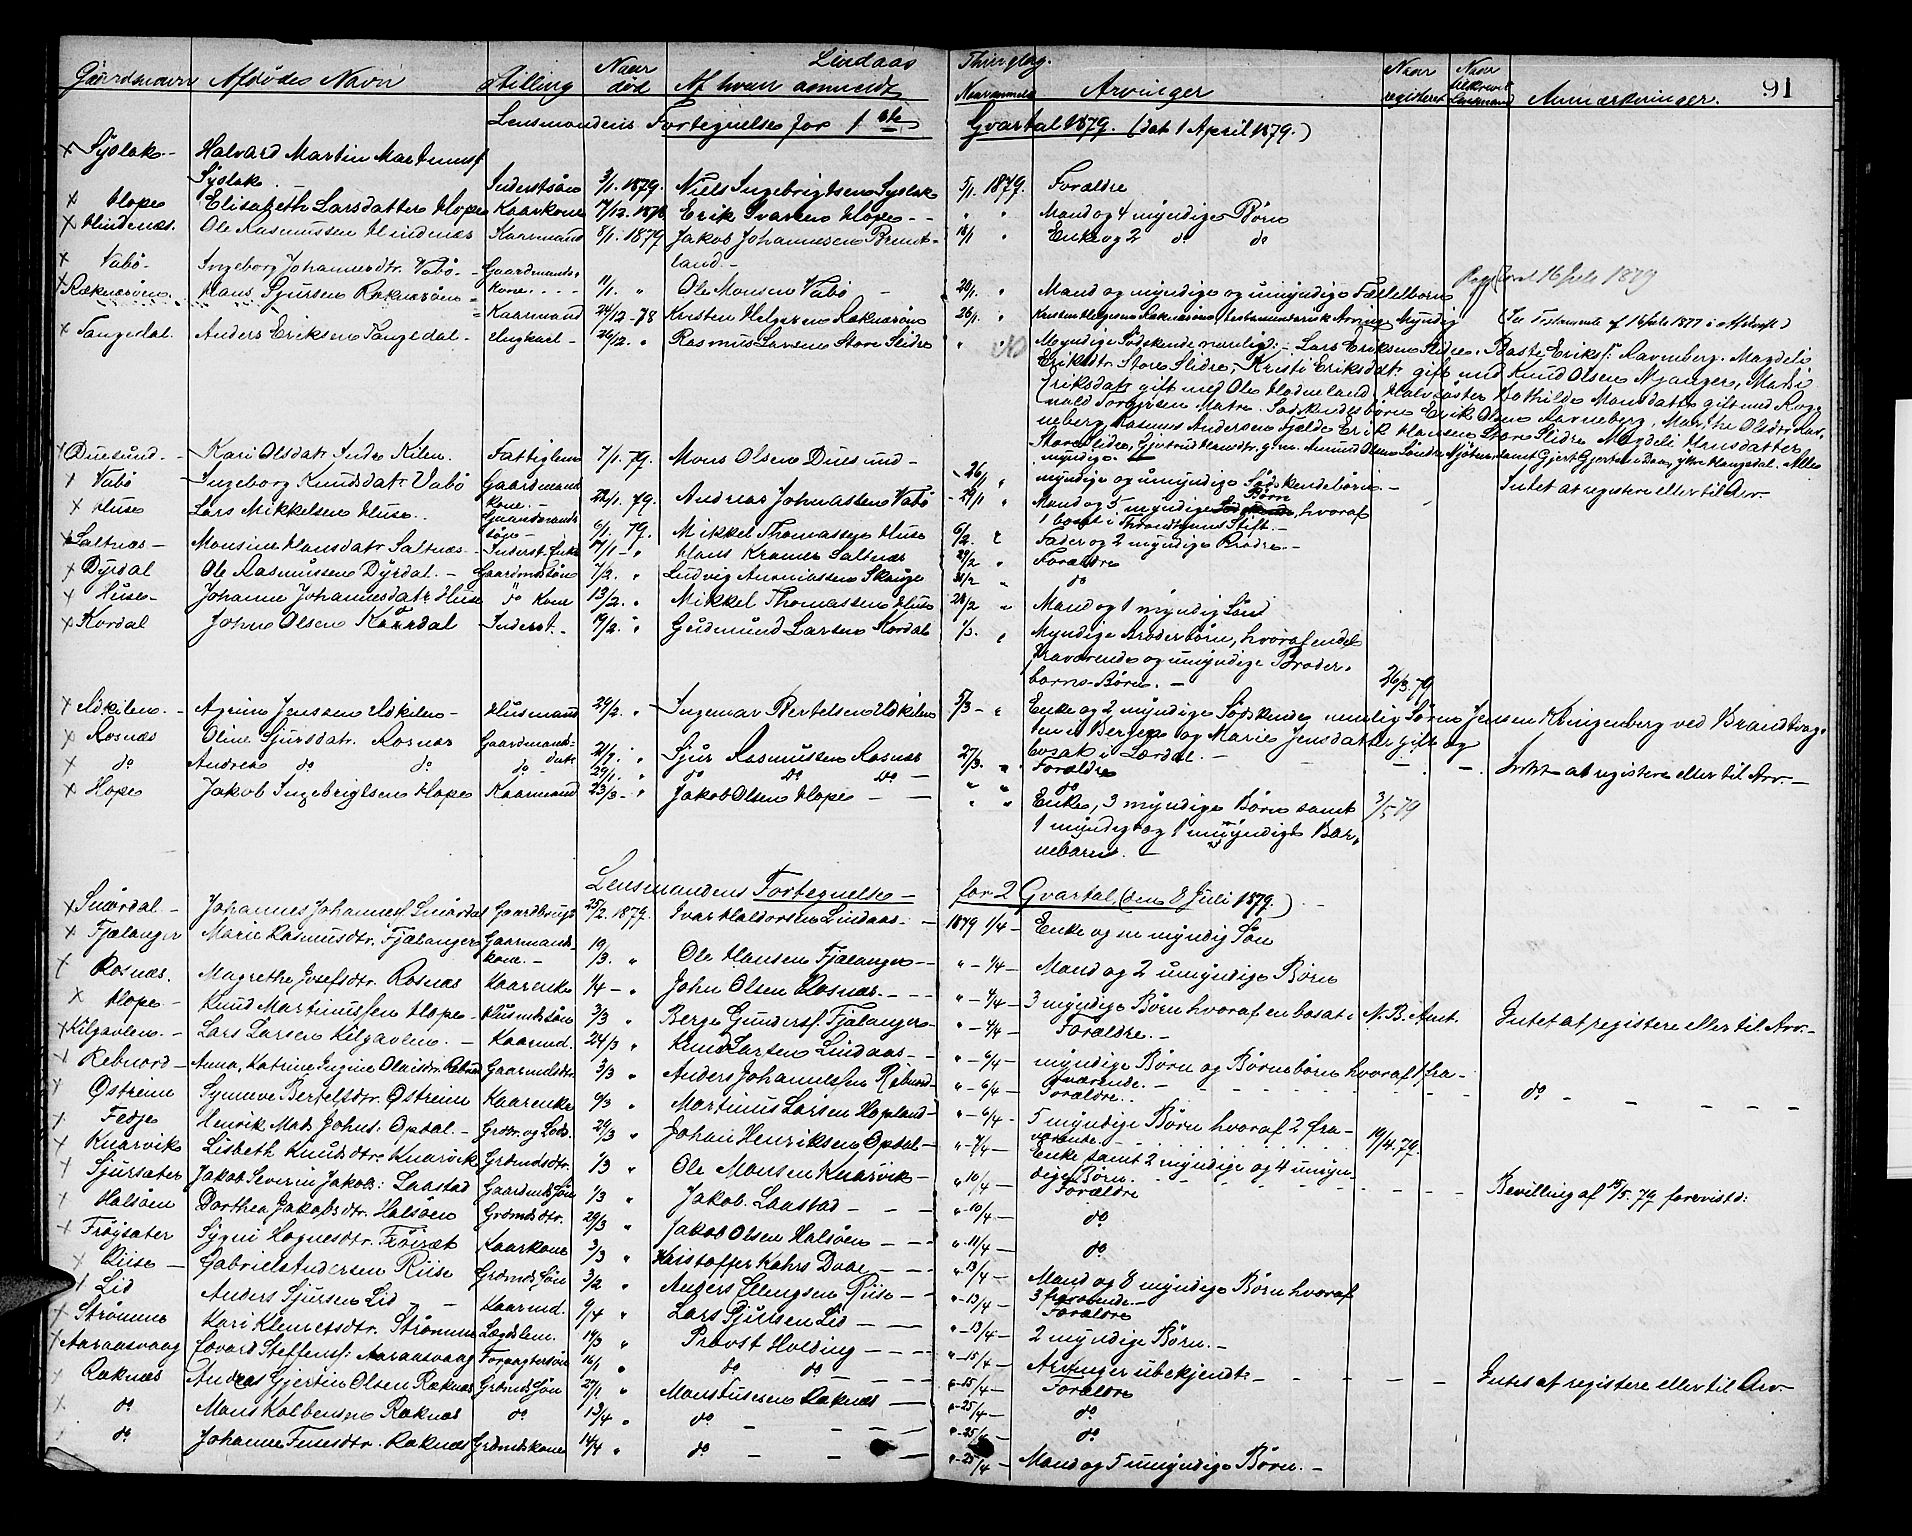 Lindaas Thinglag.
91
Gaardsnavn Afdødes Navn Stilling Naar død Af hvem anmeldt Naar anmeldt Arvinger Naar registeret Anmærkninger.
Lensmandens Fortegnelse for 1ste Qvartal 1879. (dat 1 April 1879.)
x Syslak - Halvard Martin
Syslak Inderstsøn 3/1. 1879. Niels Ingebrigtsen Syslak 5/1. 1879. Forældre
x Hope Elisabeth Larsdatter Hope Kaarkone 17/12. 1878 Erik Hope - - " " Mand og 4 myndige Børn
x Hindenæs. Ole Rasmussen Hindenæs Kaarmand 8/1. 1879 Jakob Johannesen 18/1 " Enke og 2 do do
land. -
x Vabø - Ingeborg Johannesdtr. Vabø. - Gaardmands-
kone. 11/1. " Ole Monsen Vabø - 20/1. " Mand og myndige og umyndige Fællelbørn
16 Juli 1879
x Raknerøen Hans Sjursen Raknerøen Kaarmand 24/12-78 Kristen Helgesen Raknerøen 26/1. " Kristen Helgesen Raknerøen, testamentarisk Arving, Myndig (Se Testamente af 16 Juli 1877 i Afskrift)
x Tangedal. Anders Eriksen Tangedal - Ungkarl - 26/12. " Rasmus Larsen Store Slidre " " Myndige Sødskende nemlig: - Lars Eriksen Slidre, Baste Eriks. Ravneberg. Magdeli
Eriksdtr. Store Slidre, Kristi Eriksdatr. gift med Knud Olsen Mjanger, Marthi
Eriksdatr gift med Ole Hodneland, Halvsøster Bothilde Monsdatter gift med Rogn-
vald Torgersen Matre. Sødskendebørn Erik Olsen Ravneberg, Marthe Olsdtr Rav-
neberg, Rasmus Andersen Fjelde, Erik Hansen Store Slidre, Magdeli Hansdatter
Store Slidre, Gjertrud Hansdtr, g. m. Amund Olsen samt Gjert Gjertsen Alle
myndige. -
x Duesund. - Kari Olsdatr Indre Kilen. Fattiglem 7/1. 79. Mons Olsen Duesund - - 26/1 " myndige og umyndige Sødskendebørn. - Intet at registere eller til Arv -
x Vabø Ingeborg Knudsdatr. Vabø Gaardmands
kone. - 22/1. 79. Andreas Johnassen Vabø - 29/1 " Mand og 5 myndige Børn, hvoraf
1 bosat i Throndhjems Stift. -
x Huse Lars Mikkelsen Huse. Gaardmands
søn - 6/1. 79. Mikkel Thomassen Huse 6/2. " Fader og 2 myndige Brødre. -
x Saltnæs - Monsine Hansdatr Saltnæs - Inderst. Enke 17/1 - " Hans Kramer Saltnæs 24/2 " Forældre
x Dyrdal Ole Rasmussen Dyrdal. - Gaardmdssøn 7/2. " Ludvig Ananiassen Skauge 21/2 " do
x Huse - Johanne Johannesdatr Huse do Kone 13/2. " Mikkel Thomassen Huse 28/2 " Mand og 1 myndig Søn
x Kordal John Olsen Kordal Inderst. - 19/2. " Gudmund Larsen Kordal 1/3. " Myndige Broderbørn, hvoraf endel
fraværende og umyndige Broder-
børns Børn. - 26/3. 79
x Adkilen. - Jenssen Adkilen - Husmand 24/2. " Ingemar Bertelsen Adkilen 5/3 - " Enke og 2 myndige Sødskende nemlig Søren Jensen Klingenberg ved Brandvag-
ten i Bergen og Marie Jensdatter gift og
bosat i Lærdal. -
x Rosnæs Oline Sjursdatr. Rosnæs Gaardmands-
datr 21/1. " Sjur Rasmussen Rosnæs 27/3. " Forældre - - Intet at registere eller til Arv. -
x do Andrea do do do - 29/1. " do do do - " " do
x Hope Jakob Ingebrigtsen Hope Kaarmand 23/3 - " Jakob Olsen Hope - - " " Enke, 3 myndige Børn samt 3/5 79
1 myndigt og 1 umyndigt Bar-
nebarn. -
Lensmandens Fortegnelse - for 2 Qvartal (den 8 Juli 1879.) -
x Snærdal - Johannes Johannes. Snærdal Gaardbruger 25/2. 1879. Ivar Haldorsen Lindaas. - 1879 1/4 - Enke og en myndig Søn
x Fjælanger Marie Rasmusdtr. Fjælanger Gaarmands-
kone. - 19/3. " Ole Hansen Fjælanger - " - 1/4 - Mand og 2 umyndige Børn
x Rosnæs. Magrethe Josefsdtr. Rosnæs Kaarenke 1/4 - " John Olsen Rosnæs. - - - " - 4/4 - 3 myndige Børn hvoraf en bosat i N. B. Amt. Intet at registere eller til Arv -
x Hope - Knud Martinussen Hope - Husmdssøn 3/3 " Berge Gunders. Fjælanger - " - 4/4 - Forældre. -
x Kilgavlen. - Lars Larsen Kilgavlen. - Kaarmd. 24/3 " Knud Larsen Lindaas - - " - 6/4 - myndige Børn og Børnebørn hvoraf 1 fra-
værende. -
x Rebnord - Anna, Katrine Ingine Olaisdtr. Rebnord Gaarmdsdtr. 3/3 " Anders Johannessen Rebnord - " - 6/4 - Forældre. do - - - -
x Østreim Synneve Bertelsdtr. Østreim Kaarenke 6/3 " Martinus Larsen Hopland - " - 6/4 - 5 myndige Børn hvoraf 2 fra-
værende. -
x Fedje Henrik Mads Johns. Opdal. - Grdbr. og Lods. 29/3 " Johan Henriksen Opdal - " - 7/4 - Enke samt 2 myndige og 4 umyn-
dige Børn. 19/4. 79. Bevilling af 15/5. 79 forevist:
x Knarvik Lisbeth Knudsdtr. Knarvik Grdmdsdtr. 1/3 " Ole Monsen Knarvik - " 10/4 - Forældre
x Sjursæter Jakob Severin Jakobs: Laastad Gaardmds Søn 1/3 " Jakob. Laastad - - - " - 10/4 - do
x Halsøen Dorthea Jakobsdtr. Halsøen Grdmdsdtr. 29/3 " Jakob Olsen Halsøen - - - " - 11/4 - do
x Frøysæter Sygni Hognesdtr. Frøisæt Kaarkone 3/3 " Kristoffer Kahrs Dvae - - - " - 13/4 - Mand og 8 myndige Børn hvoraf
3 fraværende. -
x Riise - Gabriel Andersen Riise Grdmds Søn 3/2 " Anders Ellingsen Riise - - " - 13/4 - Forældre
x Lid Anders Sjursen Lid - - Kaarmd. 9/4 " Lars Sjursen Lid - - " - 13/4 - 2 myndige Børn. -
x Strømme Kari Klemetsdtr. Strømme Lægdslem. 19/3 " Provst Holding - - - " - 15/4 - Arvinger ubekjendt - - - - - Intet at registere eller til Arv -
x Aaraasvaag Edvard Steffens: Aaraasvaag Forpagtersøn 16/1 " do do - - - " - 25/4 - Forældre
x Raknæs Andreas Gjertin Olsen Raknæs Grdmds Søn 27/1 " Mons Raknæs - " - 25/4 - do
x do Mons Kolbensen Raknæs do 13/4 " do - - - " - 25/4 - do
x do Johanne Raknæs Grdmdskone 14/4 " do - - - " - 25/4 - Mand og 5 umyndige Børn. -